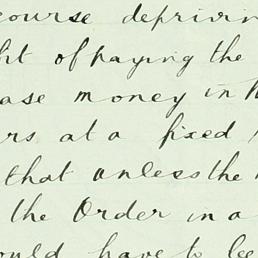 course deprivin
ht of paying the
ase money in
rs at a fixed
that unless the
the Order in a
ould have to be